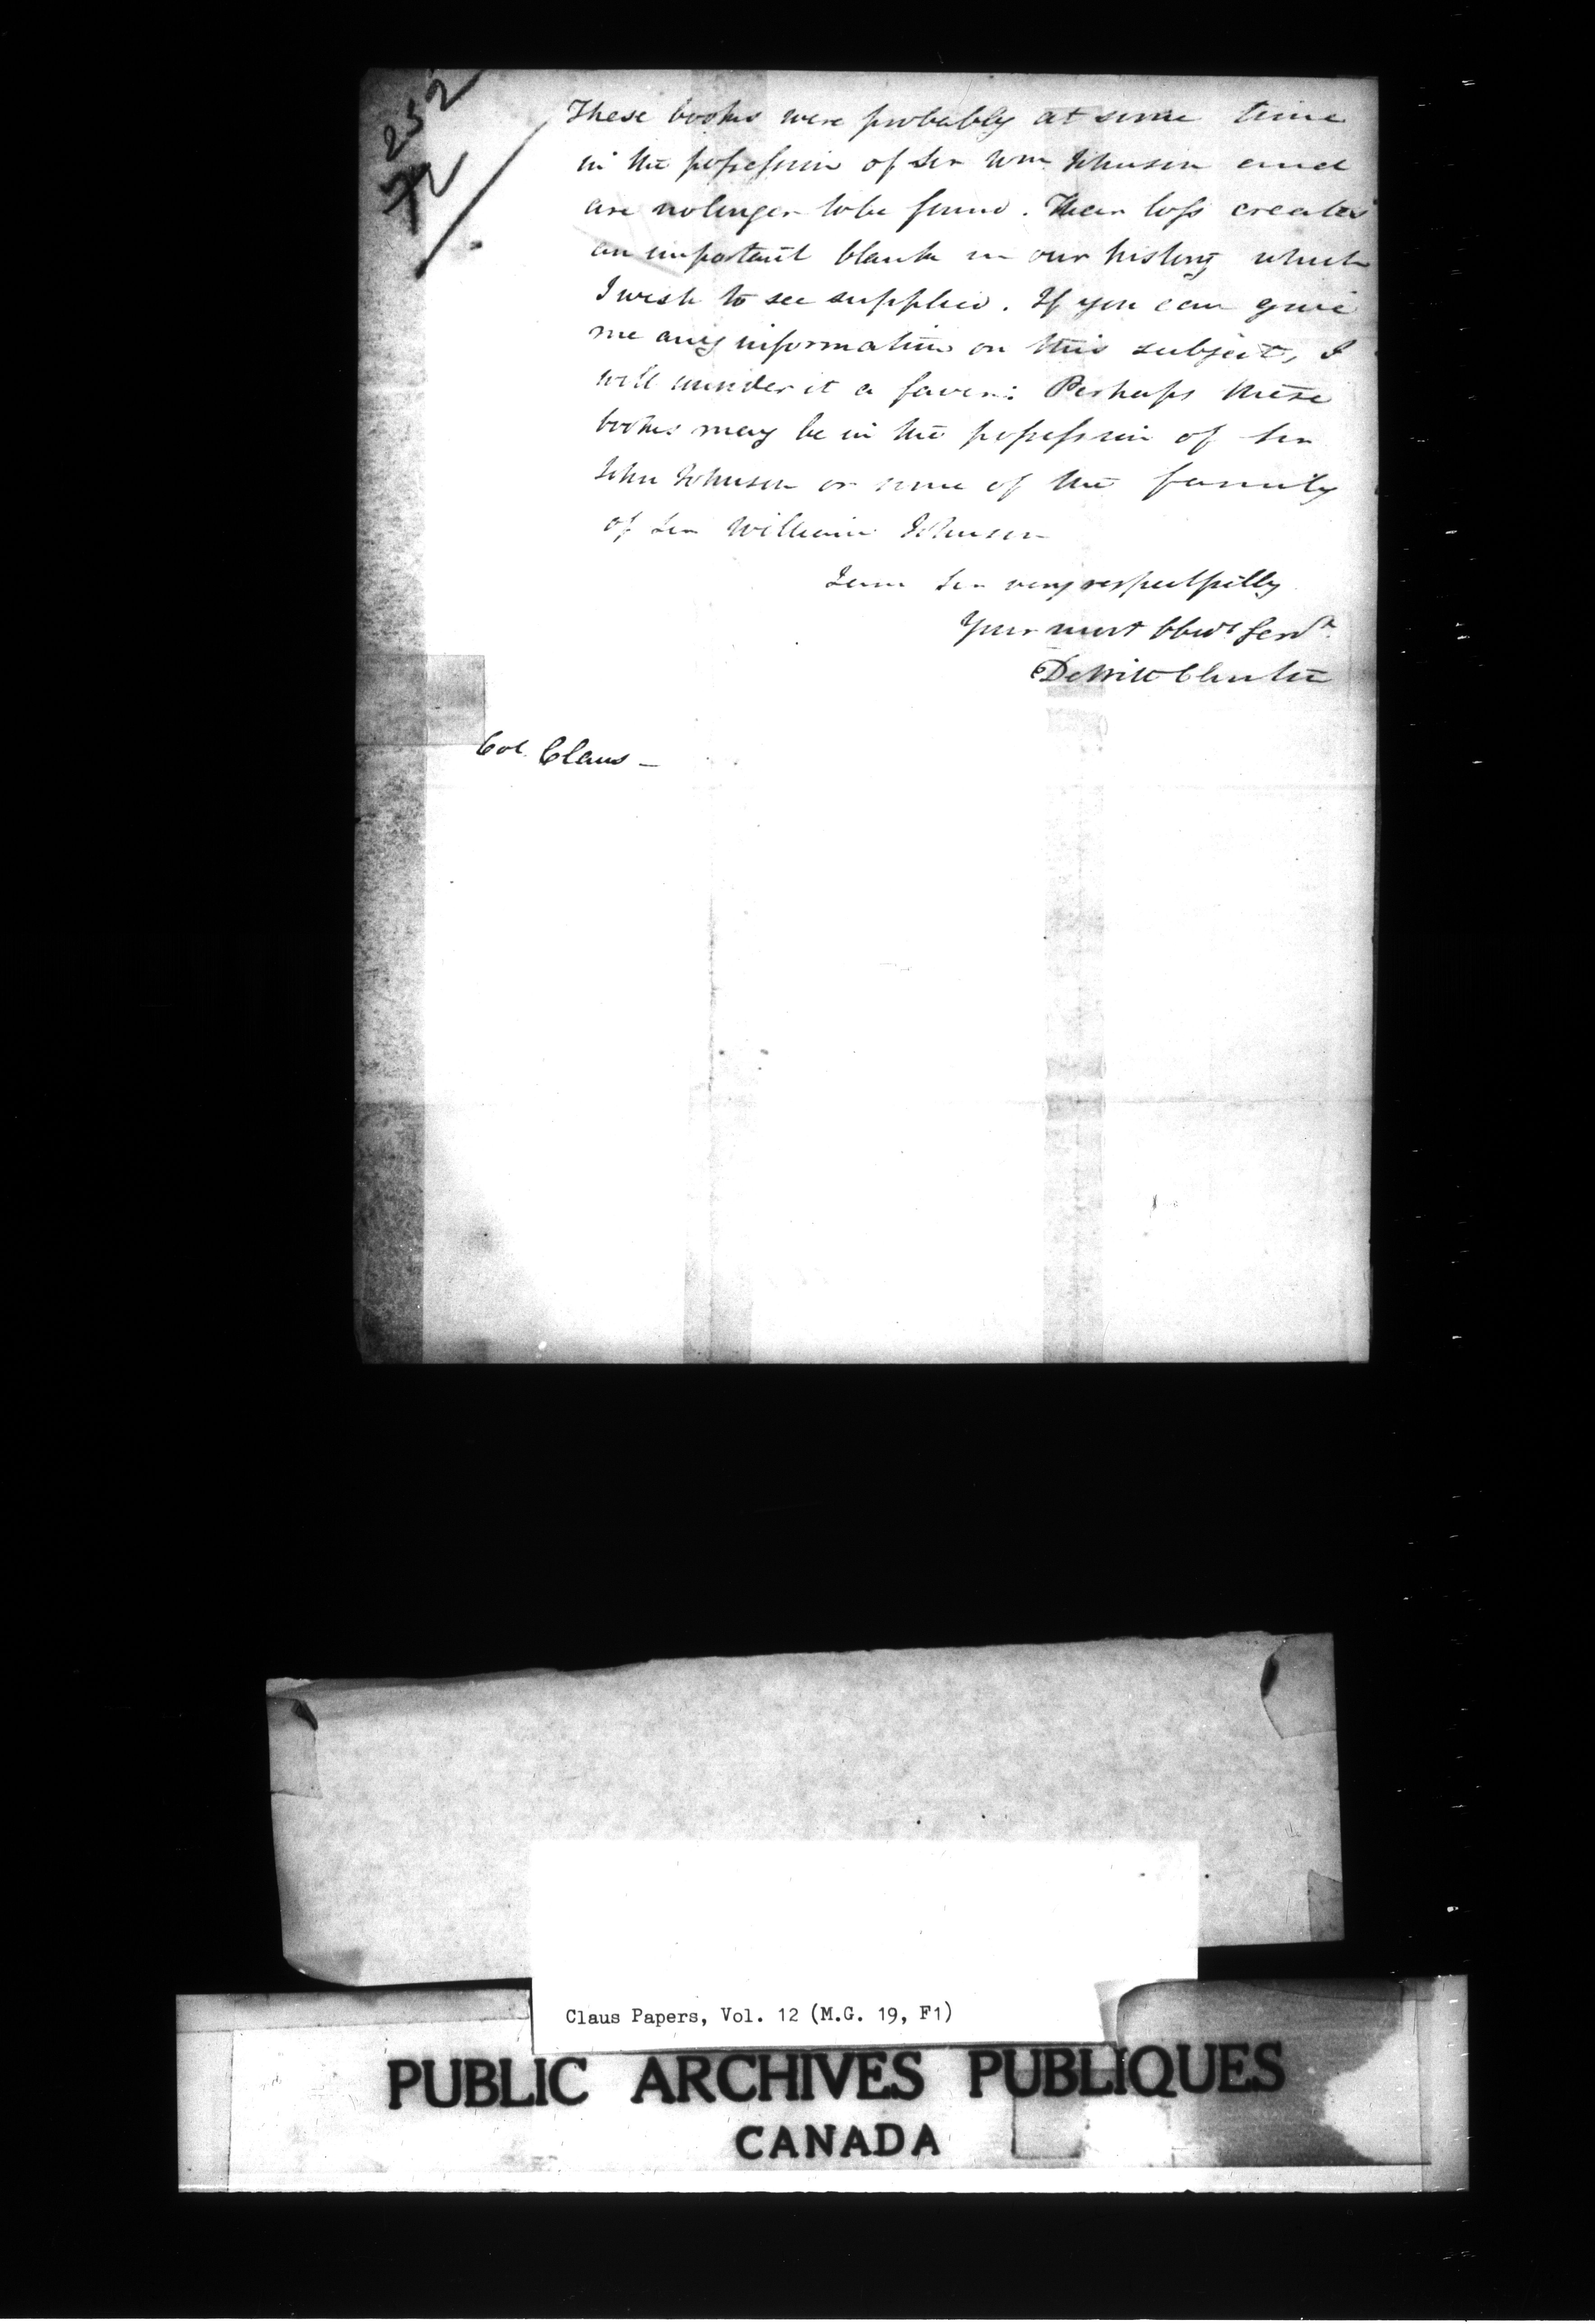 252
72
These books were probably at some time
in the possession of Sir Wm Johnson and
are no longer to be found. Their loss creates
an important blank in our history which
I wish to see supplied. If you can give
me any information on this subject, I
will consider it a favor: Perhaps these
books may be in the possession of Sir
John Johnson or some of the family
of Sir William Johnson
I am Sir very respectfully
Your most Obedt Servt
DeWitt Clinton
Col. Claus –
Claus Papers, Vol. 12 (M.G. 19, F1)
PUBLIC ARCHIVES PUBLIQUES
CANADA